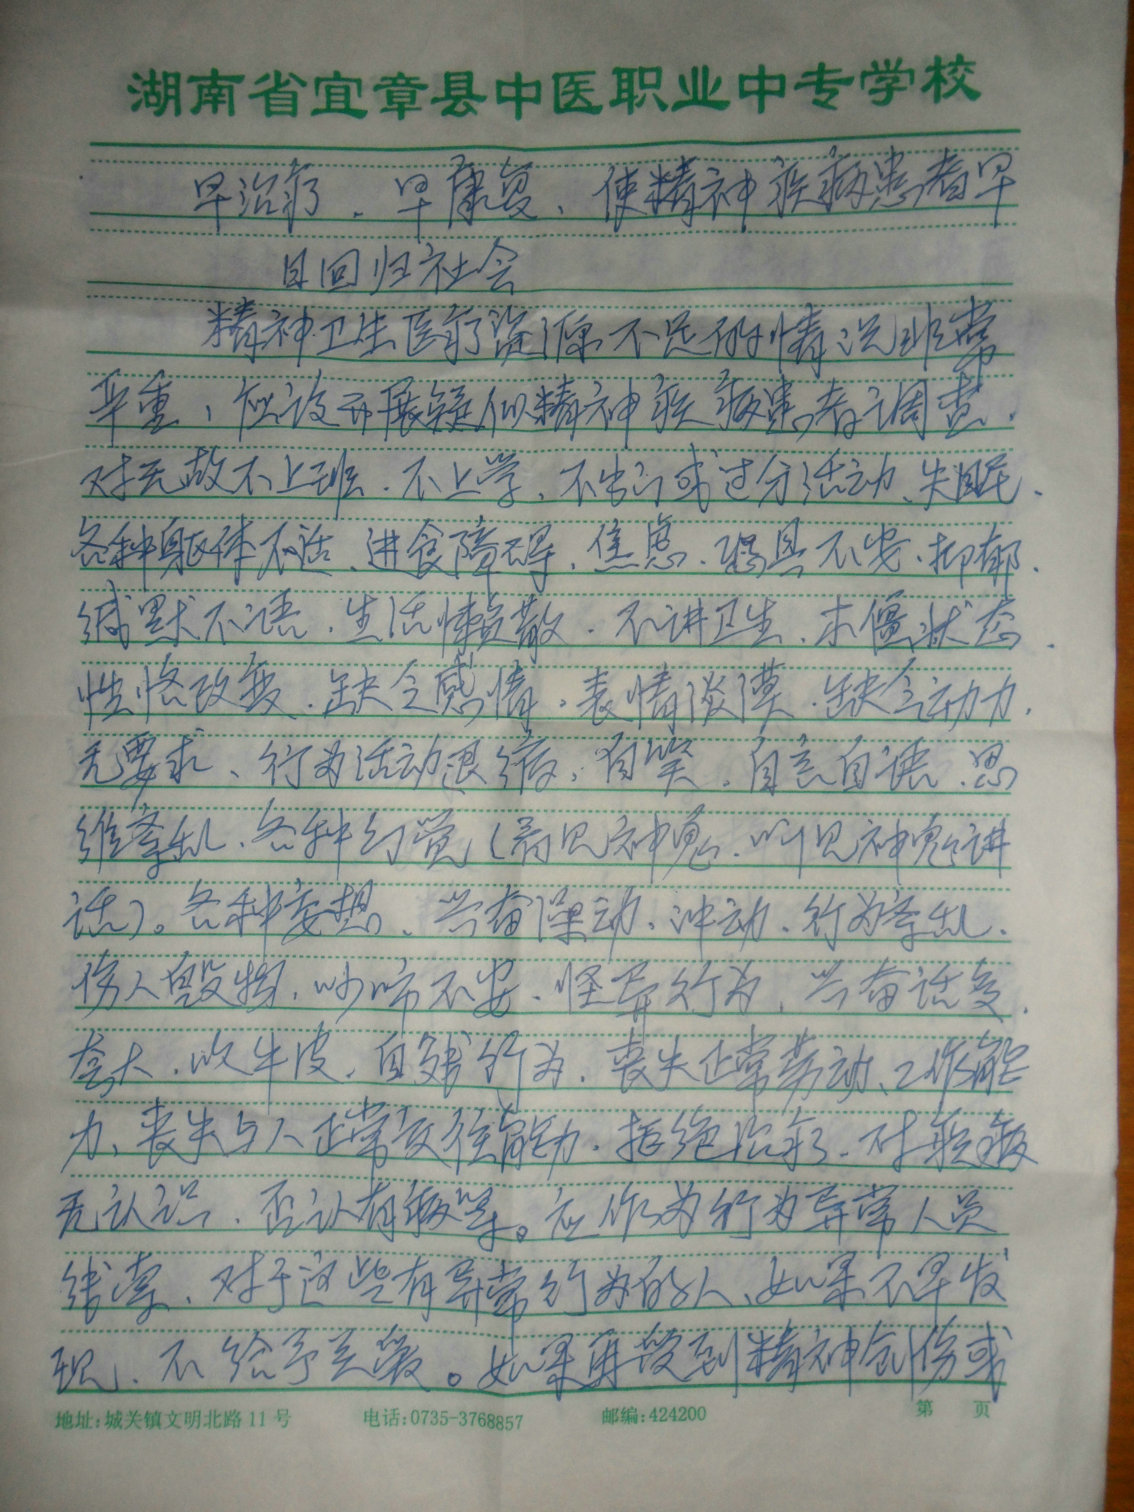 湖南省宜章县中医职业中专学校
早治疗、早康复、使精神疾病患者早
日回归社会
精神卫生医疗资源不足的情况非常
严重，应设开展疑似精神疾病患者调查，
对无故不上班、不上学、不出门或过分活动、失眠、
各种躯体不适、进食障碍、焦虑、恐惧不安、抑郁、
缄默不语、生活懒散、不讲卫生、木僵状态、
性格改变、缺乏感情、表情淡漠、缺乏动力、
无要求、行为活动退缩、自笑、自言自语、思
维零乱、各种幻觉（看见神鬼、听见神鬼讲
话）。各种妄想、兴奋躁动、冲动、行为零乱、
伤人毁物、吵闹不安、怪异行为、兴奋话多、
夸大、吹牛皮、自残行为、丧失正常劳动、工作能
力、丧失与人正常交往能力、拒绝治疗、对疾病
无认识、否认有病等。应作为行为异常人员
线索、对于这些有异常行为的人、如果不早发
现、不给予关爱。如果再受到精神创伤或
地址:城关镇文明北路11号 电话:0735-3768857 邮编:424200 第 页